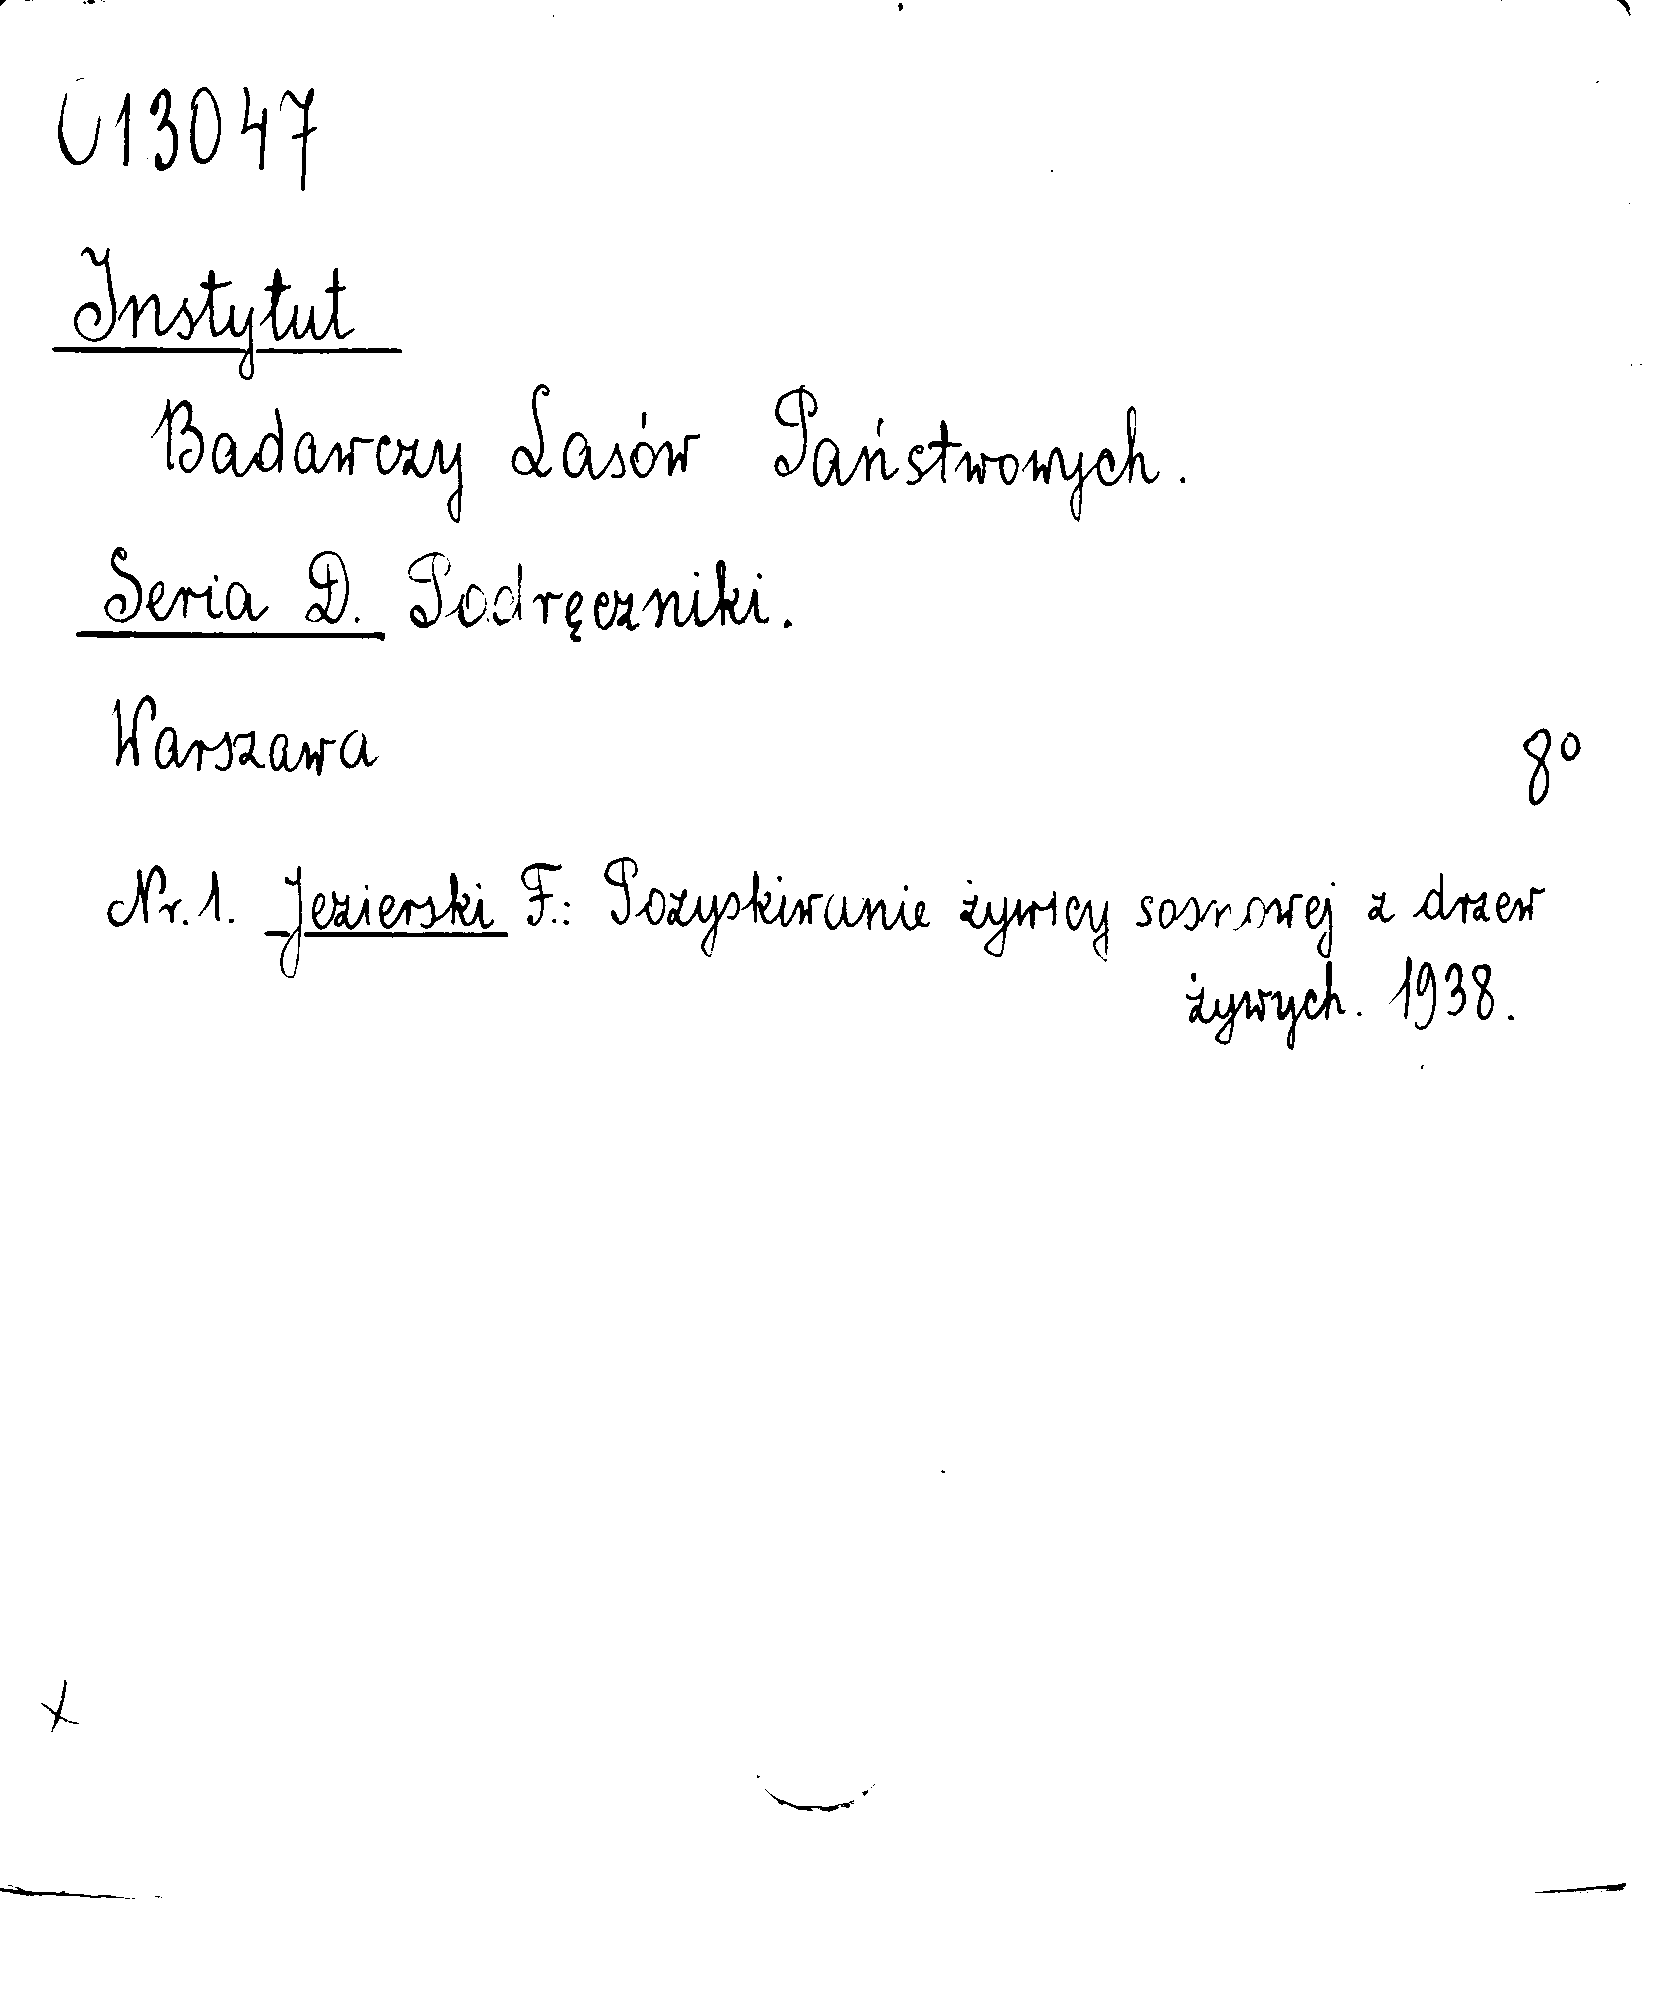 U13047
Instytut
Badawczy Lasów Państwowych.
Seria D. Podręczniki.
Warszawa 8º
Nr. 1. Jezierski F.: Pozyskiwanie żywicy sosnowej z drzew
żywych. 1938.
x